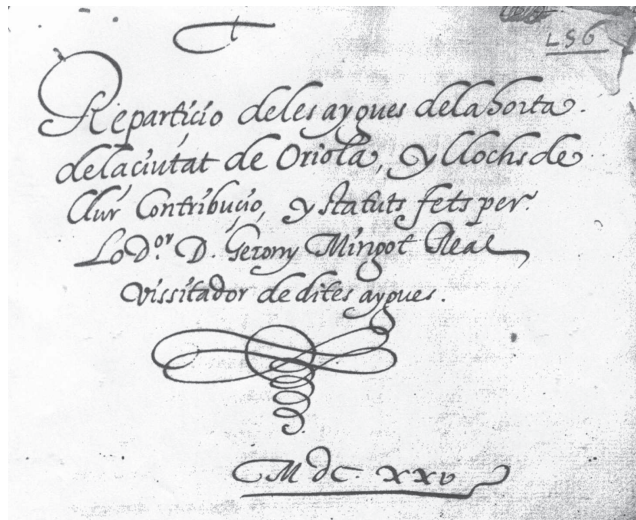 L56
Repartiçio deles aygues dela horta.
dela çiutat de Oriola, y llochs de
llur Contribuçio, y statuts fets per.
Lo D.or D. Gerony Mingot Real
Vissitador de dites aygues.
MdC. xxv